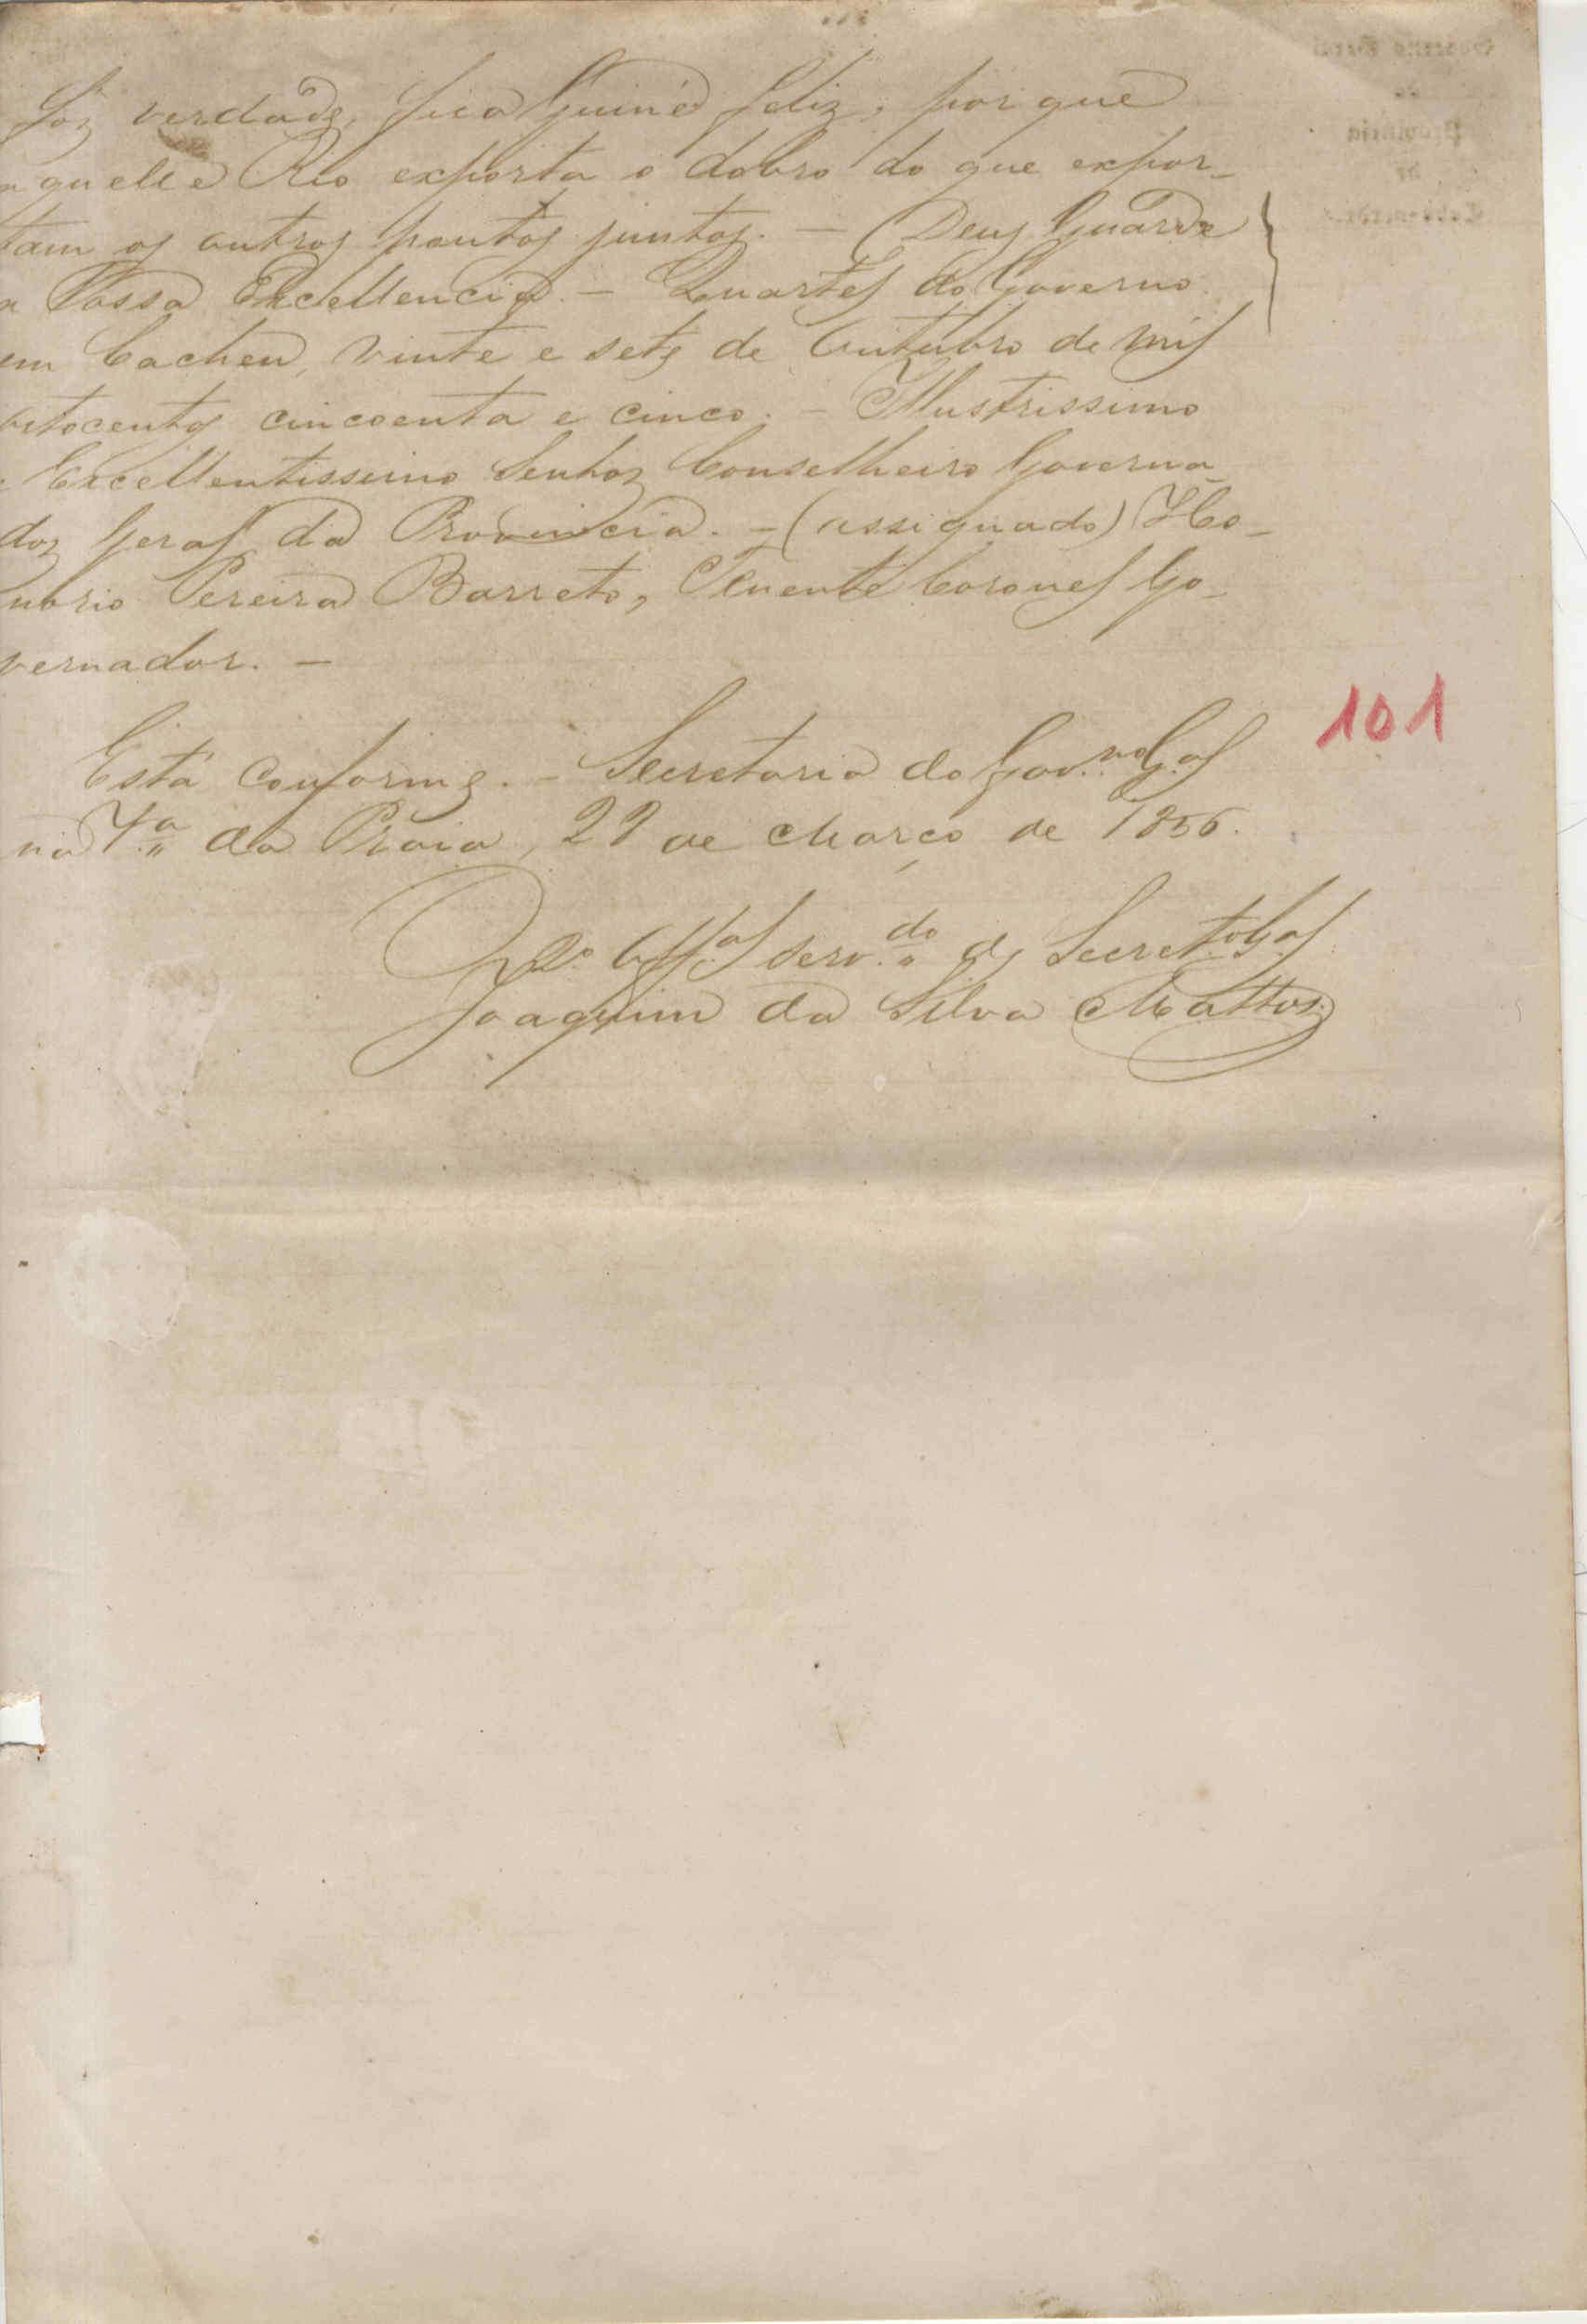 for verdade, fica Guiné feliz, por que
aquelle Rio exporta o dobro do que expor-
tam os outros pontos juntos. - Deus Guarde
a Vossa Excellencia. - Quartel do Governo
em Cacheu, vinte e sete de Outubro de mil
oitocentos cincoenta e cinco. - Illustrissimo
e Excellentissimo Senhor Conselheiro Governa-
dor Geral da Provincia. - (assignado) Ho-
norio Pereira Barreto, Tenente Coronel Go-
vernador. -
Está conforme. - Secretaria do Gov.no G.al
na V.a da Praia, de Março de 1856.
101
O 2.o Off.al serv.do de Secret.o G.al
Joaquim da Silva Mattos
Governo Geral
da
Provincia
de
Cabo-verde.